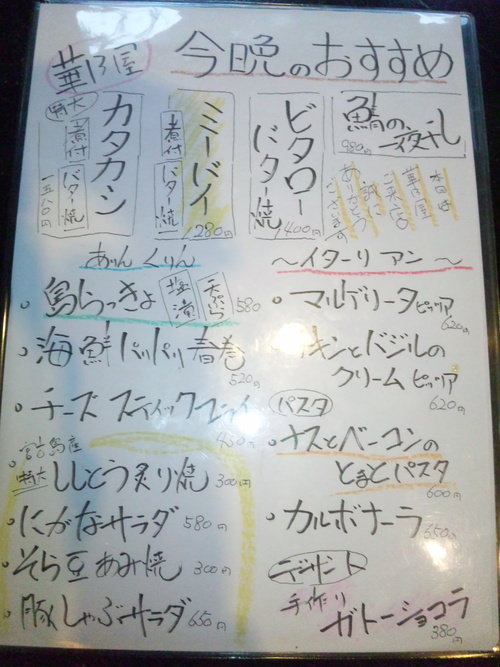 華乃屋
今晩のおすすめ
特大
カタカシ
煮付
バター焼
一五八〇円
ミーバイ
煮付
バター焼
1280円
ビタロー
バター焼
1400円
鯖の一夜干し
980円
本日は
華乃屋
ご来店
誠に
ありがとう
ございます
ありんくりん
島らっきょ 塩漬 天ぷら 580
海鮮パリパリ春巻
520円
チーズスティックフライ
宮古島産
特大 ししとう炙り焼 300円
にがなサラダ 580円
そら豆あみ焼 300円
豚しゃぶサラダ 650円
〜イターリアン〜
マルゲリータピッツァ
620円
チキンとバジルの
クリームピッツァ
620円
パスタ
ナスとベーコンの
とまとパスタ
600円
カルボナーラ 650円
デザート
手作り
ガトーショコラ
380円